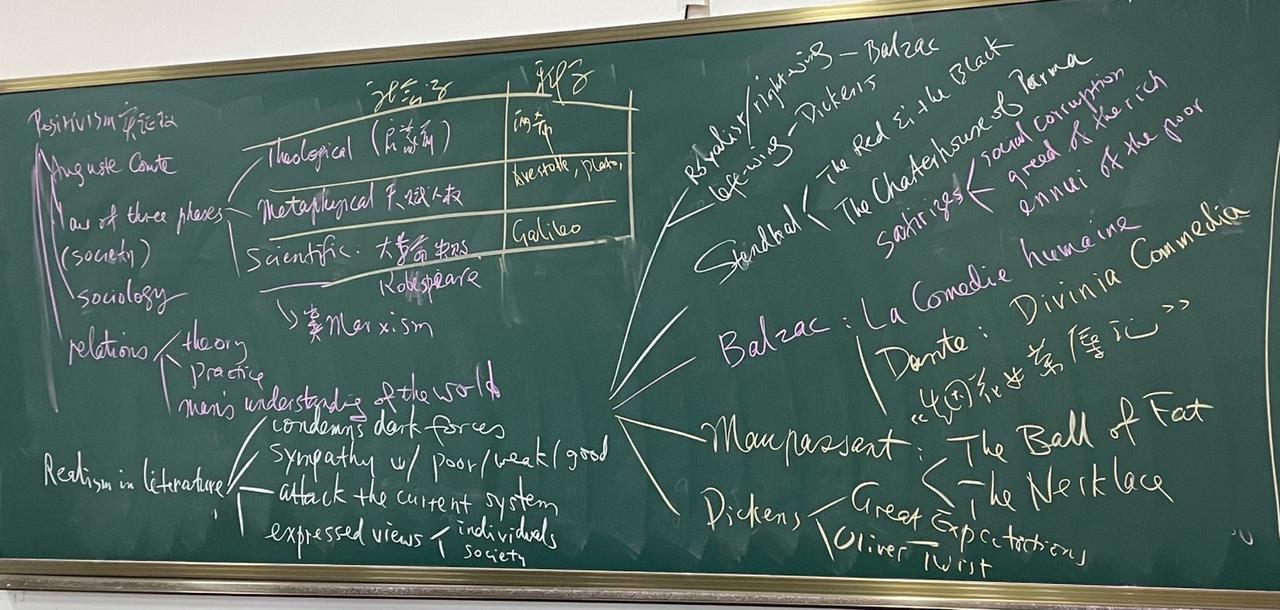 Positivism 实证
Auguste Comte
Law of three phases
(society)
sociology
relations
theory
practice
man's understanding of the world
社会学
科学
Theological
Metaphysical 天赋人权
Scientific. 大革命
Galileo
Marxism
Realism in literature
condemns dark forces
sympathy w/ poor/weak/good
attack the current system
expressed views
individuals
society
Royalist/right-wing - Balzac
left-wing - Dickens
Stendhal
The Red & the Black
The Charterhouse of Parma
satirizes
social corruption
greed of the rich
ennui of the poor
Balzac : La Comedie humaine
Dante : Divinia Commedia
Maupassant :
The Ball of Fat
The Necklace
Dickens
Great Expectations
Oliver Twist